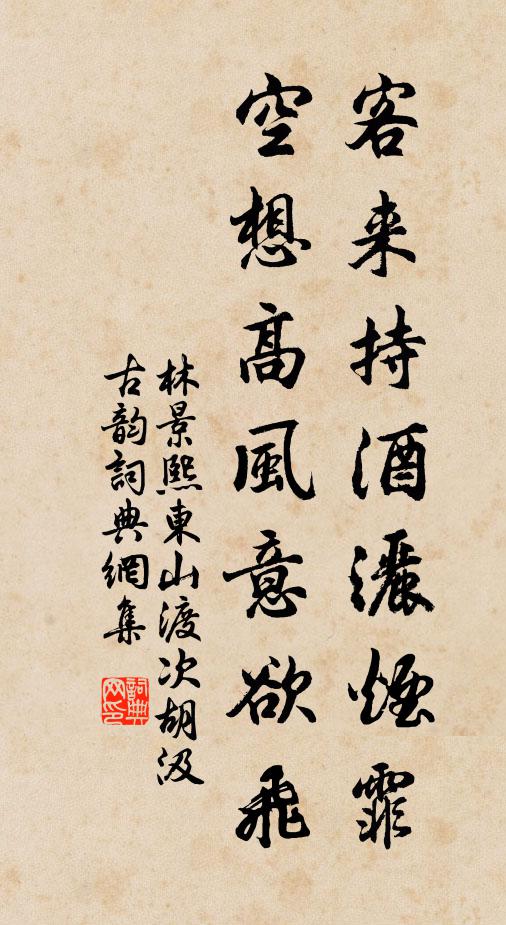 客来持酒灑煙霏
空想高風意欲飛
林景熙東山渡次胡汲
古韵詞典網集
詞典网印